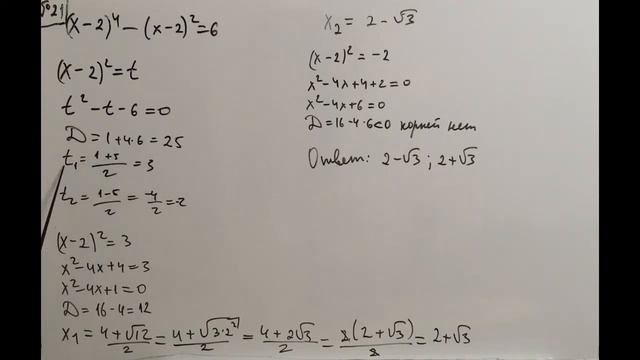 №21
(x-2)⁴ - (x-2)² = 6
(x-2)² = t
t² - t - 6 = 0
D = 1 + 4·6 = 25
t₁ = (1+5)/2 = 3
t₂ = (1-5)/2 = -4/2 = -2
(x-2)² = 3
x² - 4x + 4 = 3
x² - 4x + 1 = 0
D = 16 - 4 = 12
x₁ = (4+√12)/2 = (4+√(3·2²))/2 = (4+2√3)/2 = 2(2+√3)/2 = 2+√3
x₂ = 2 - √3
(x-2)² = -2
x² - 4x + 4 + 2 = 0
x² - 4x + 6 = 0
D = 16 - 4·6 < 0 корней нет
Ответ: 2-√3 ; 2+√3